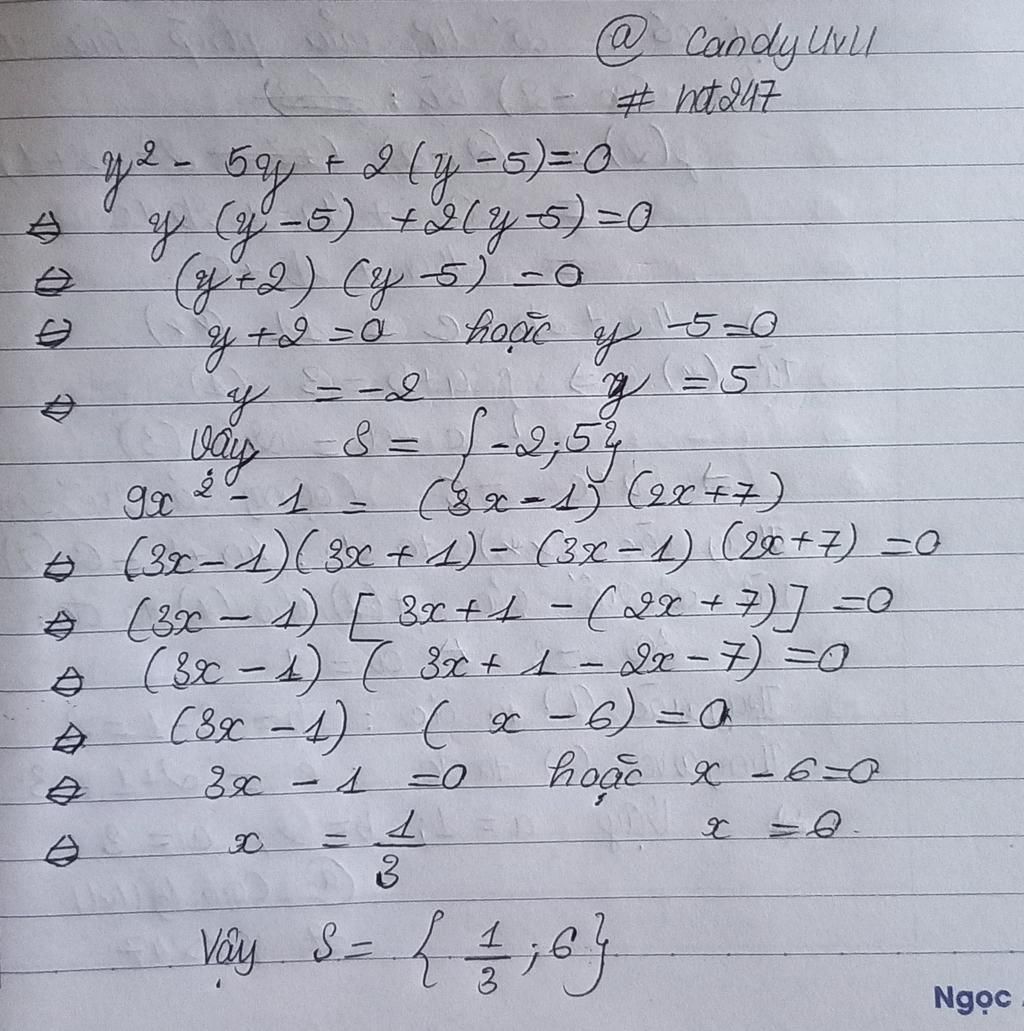 @ CandyUvU
# hdt247
y² - 5y + 2(y - 5) = 0
⇔ y (y - 5) + 2(y - 5) = 0
⇔ (y + 2) (y - 5) = 0
⇔ y + 2 = 0 hoặc y - 5 = 0
⇔ y = -2 y = 5
Vậy S = {-2; 5}
9x² - 1 = (3x - 1) (2x + 7)
⇔ (3x - 1)(3x + 1) - (3x - 1) (2x + 7) = 0
⇔ (3x - 1) [3x + 1 - (2x + 7)] = 0
⇔ (3x - 1) (3x + 1 - 2x - 7) = 0
⇔ (3x - 1) (x - 6) = 0
⇔ 3x - 1 = 0 hoặc x - 6 = 0
⇔ x = 1/3 x = 6
Vậy S = {1/3; 6}
Ngọc